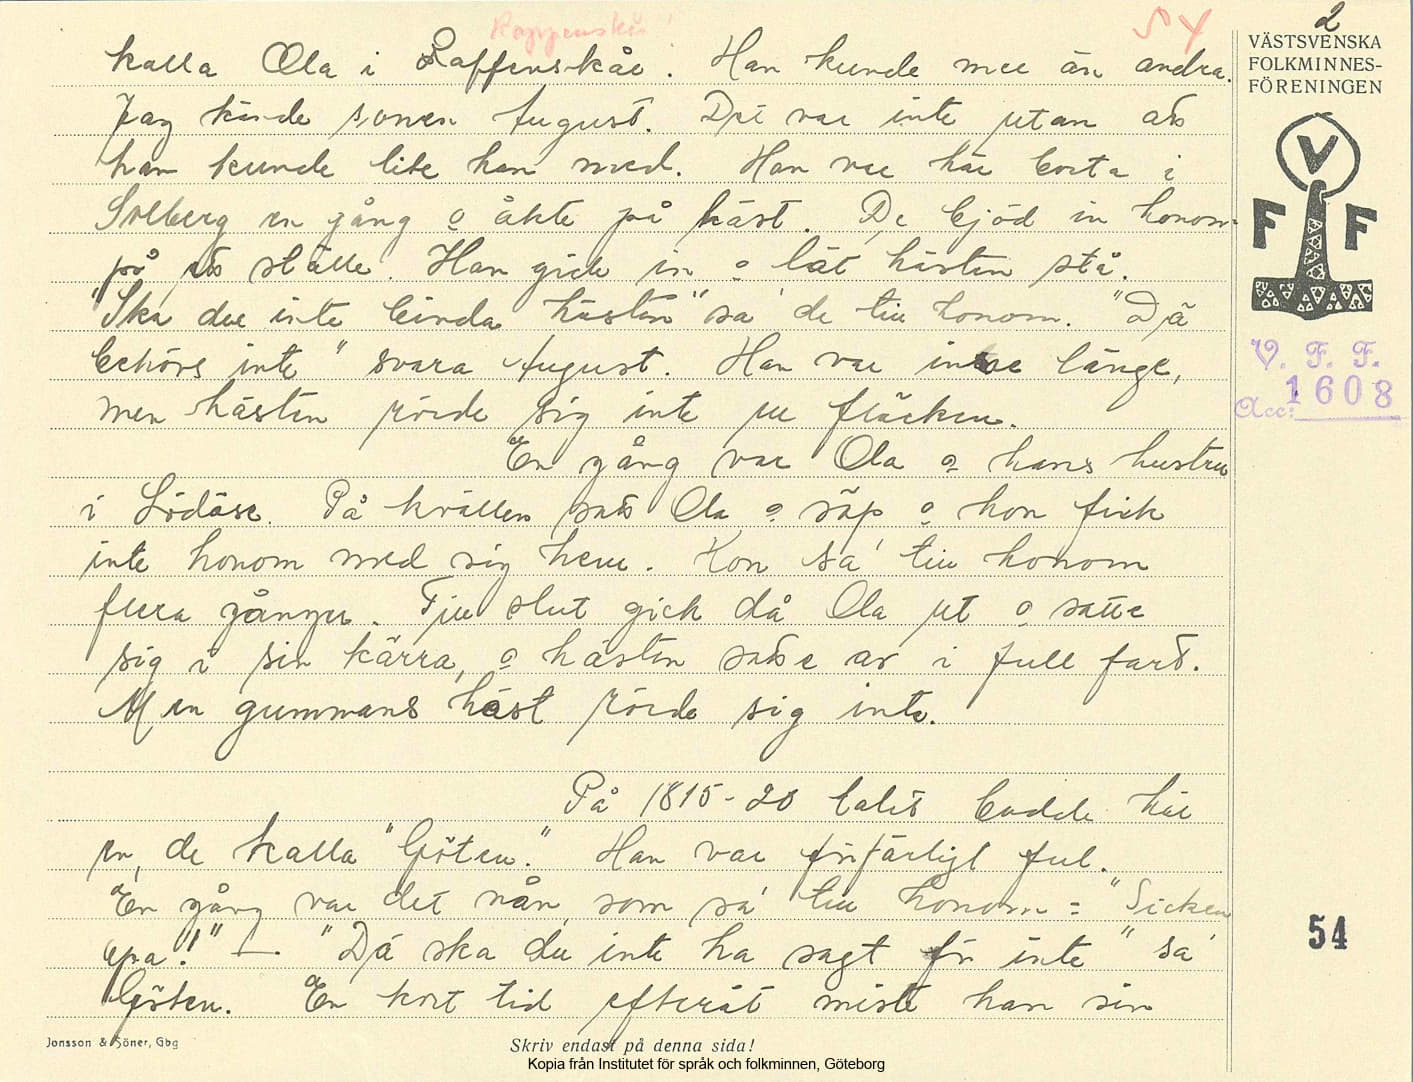 2
54
VÄSTSVENSKA
FOLKMINNES-
FÖRENINGEN
V
F F
V. F. F.
Acc: 1608
kalla Ola i Raffenskär. Han kunde mer än andra.
Jag kände sonen August. Det var inte utan att
han kunde lite han med. Han var här borta i
Solberg en gång o åkte på häst. De bjöd in honom
på ett ställe. Han gick in o lät hästen stå.
"Ska du inte binda hästen" sa' de till honom. "Dä
behövs inte" svara August. Han var inne länge,
men hästen rörde sig inte ur fläcken.
En gång var Ola o hans hustru
i Lödöse. På kvällen satt Ola o söp o hon fick
inte honom med sig hem. Hon sa' till honom
flera gånger. Till slut gick då Ola ut o satte
sig i sin kärra, o hästen satte av i full fart.
Men gummans häst rörde sig inte.
På 1815-20 talet bodde här
en, de kalla "Göten." Han var förfärligt ful.
En gång var det nån, som sa' till honom: "Sicken
apa!" — "Dä ska du inte ha sagt för inte" sa'
Göten. En kort tid efteråt miste han sin
54
Jonsson & Söner, Gbg
Skriv endast på denna sida!
Kopia från Institutet för språk och folkminnen, Göteborg